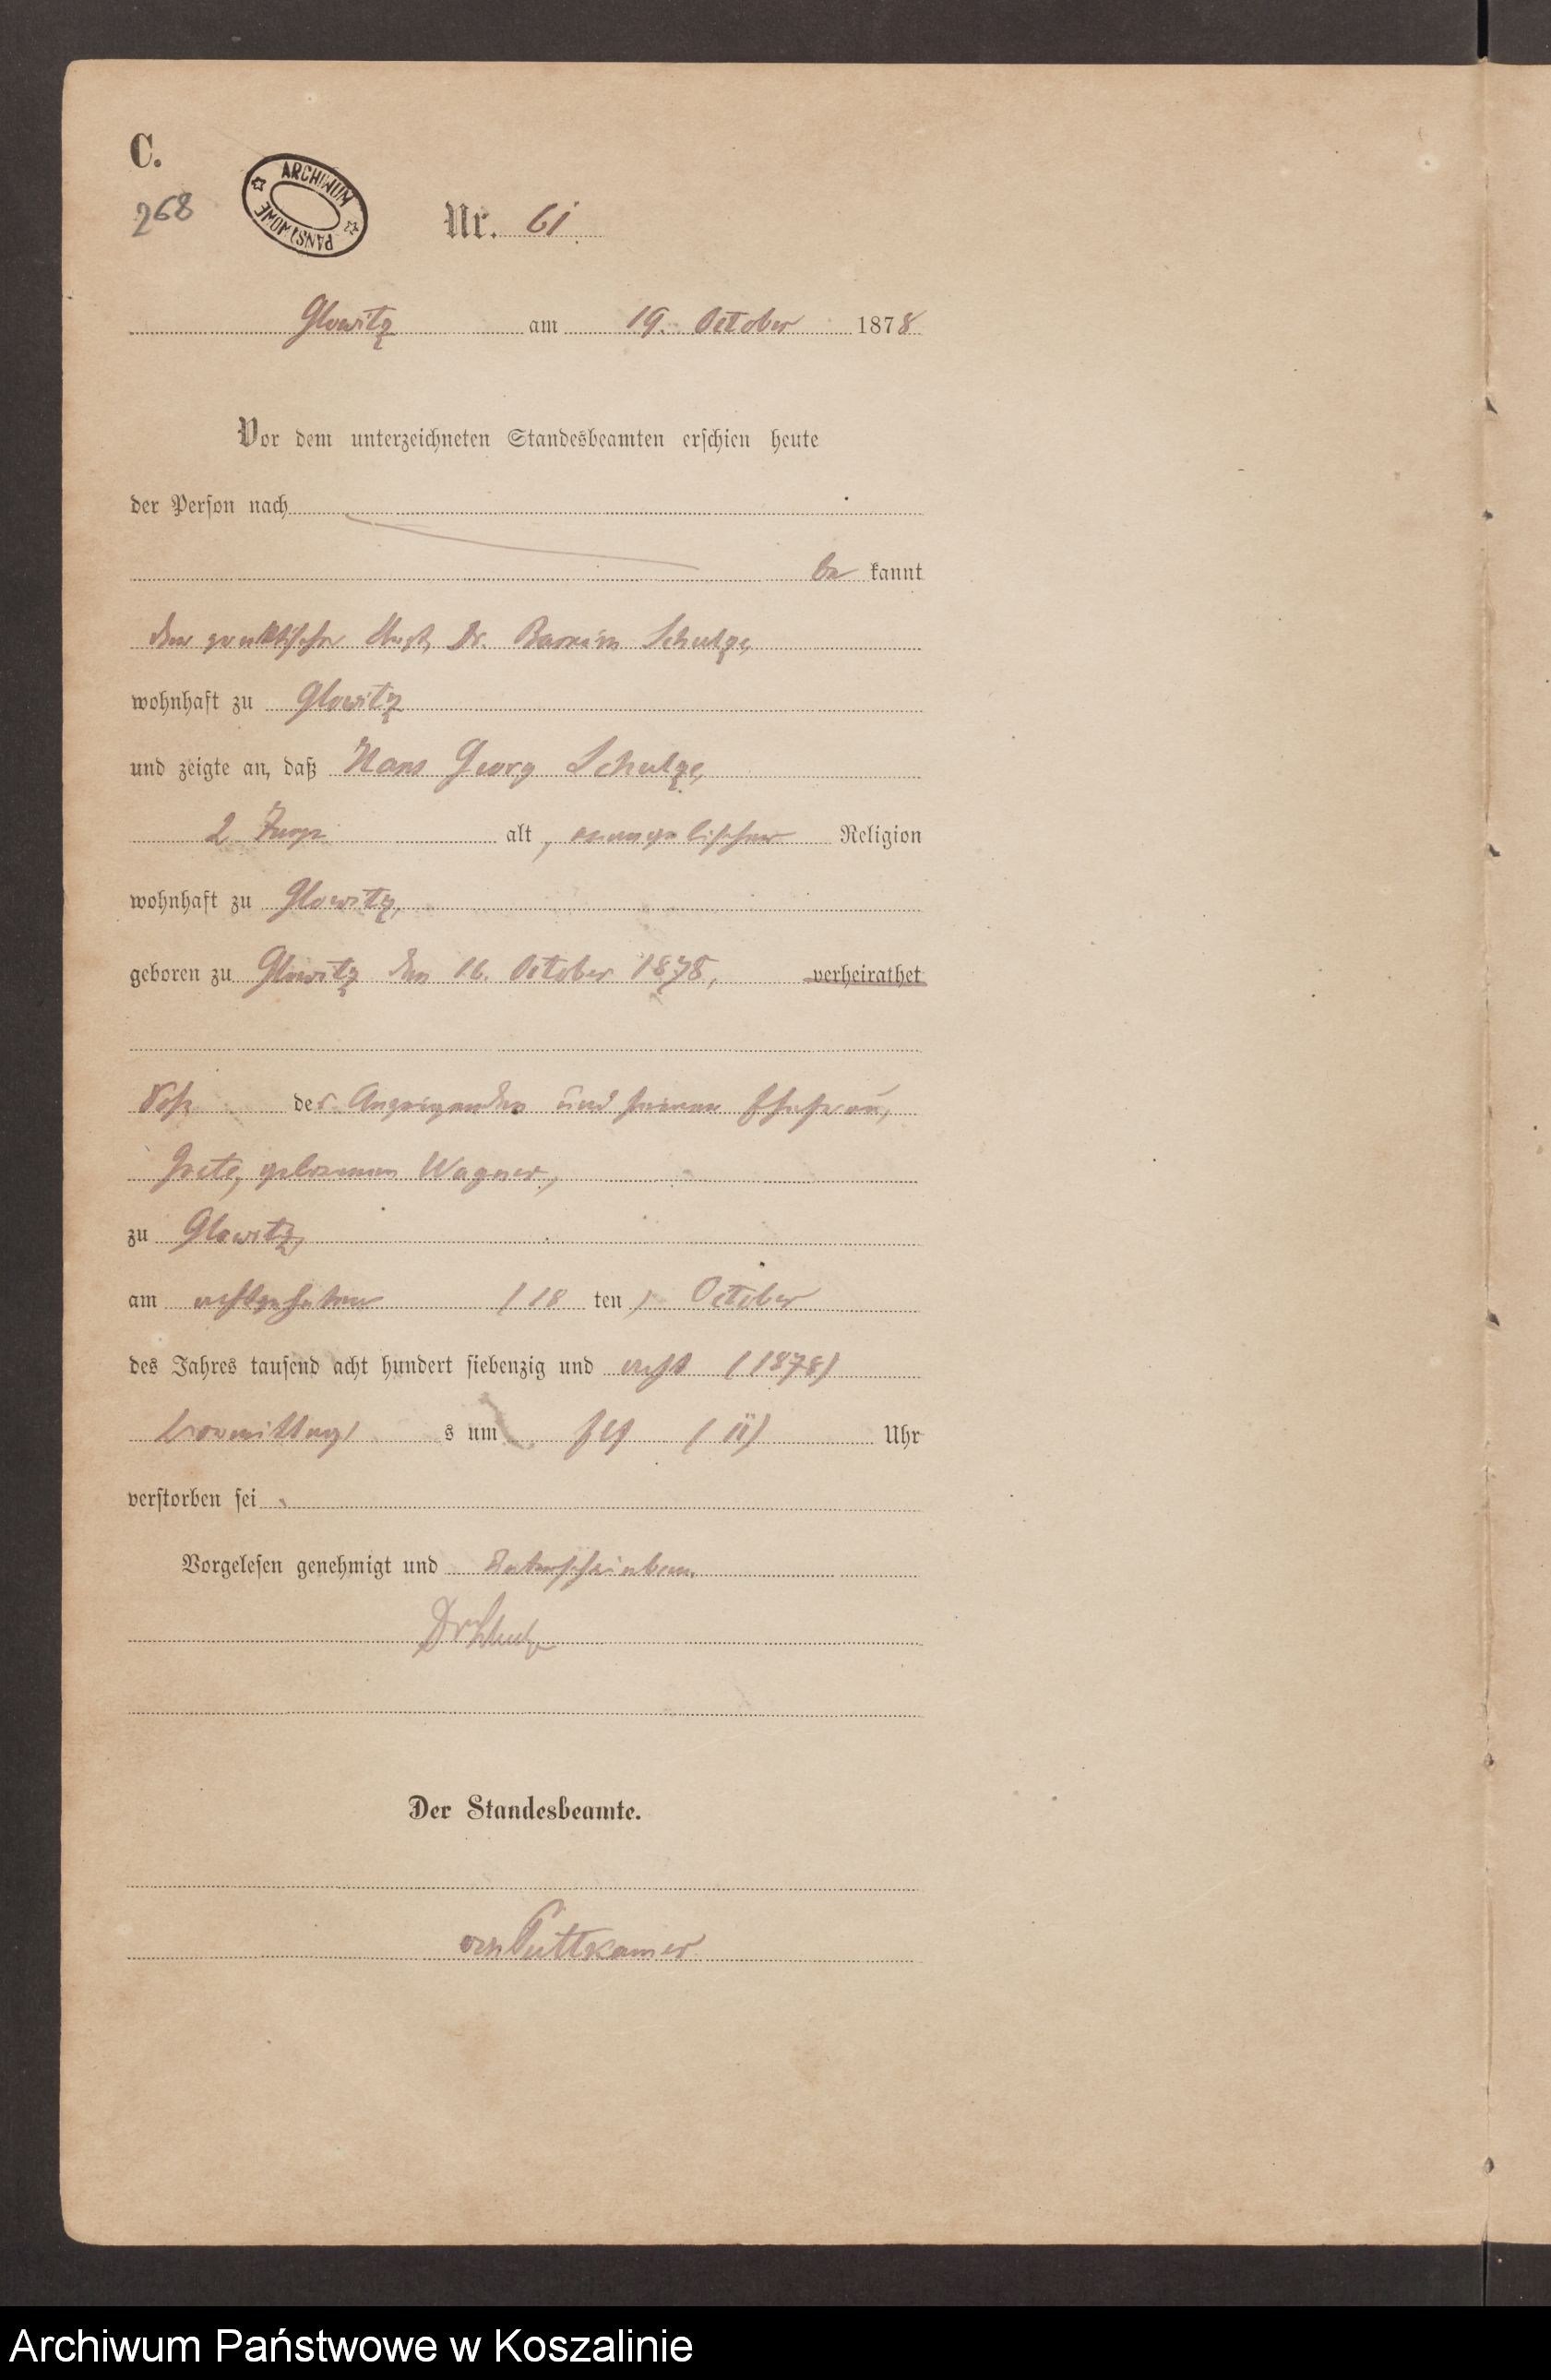 C.
268
ARCHIWUM PAŃSTWOWE
Nr. 61.
Glowitz am 19. October 1878
Vor dem unterzeichneten Standesbeamten erschien heute
der Person nach
be kannt
der praktische Arzt, Dr. Barnim Schulze,
wohnhaft zu Glowitz
und zeigte an, daß Hans Georg Schulze,
2 Tage alt, evangelischer Religion
wohnhaft zu Glowitz,
geboren zu Glowitz den 16. October 1878, verheirathet
Sohn des Anzeigenden und seiner Ehefrau,
Grete, geborenen Wagner,
zu Glowitz,
am achtzehnten (18 ten) October
des Jahres tausend acht hundert siebenzig und acht (1878)
Vormittag s um elf (11) Uhr
verstorben sei.
Vorgelesen genehmigt und unterschrieben.
Dr Schulze
Der Standesbeamte.
von Puttkamer
Archiwum Państwowe w Koszalinie